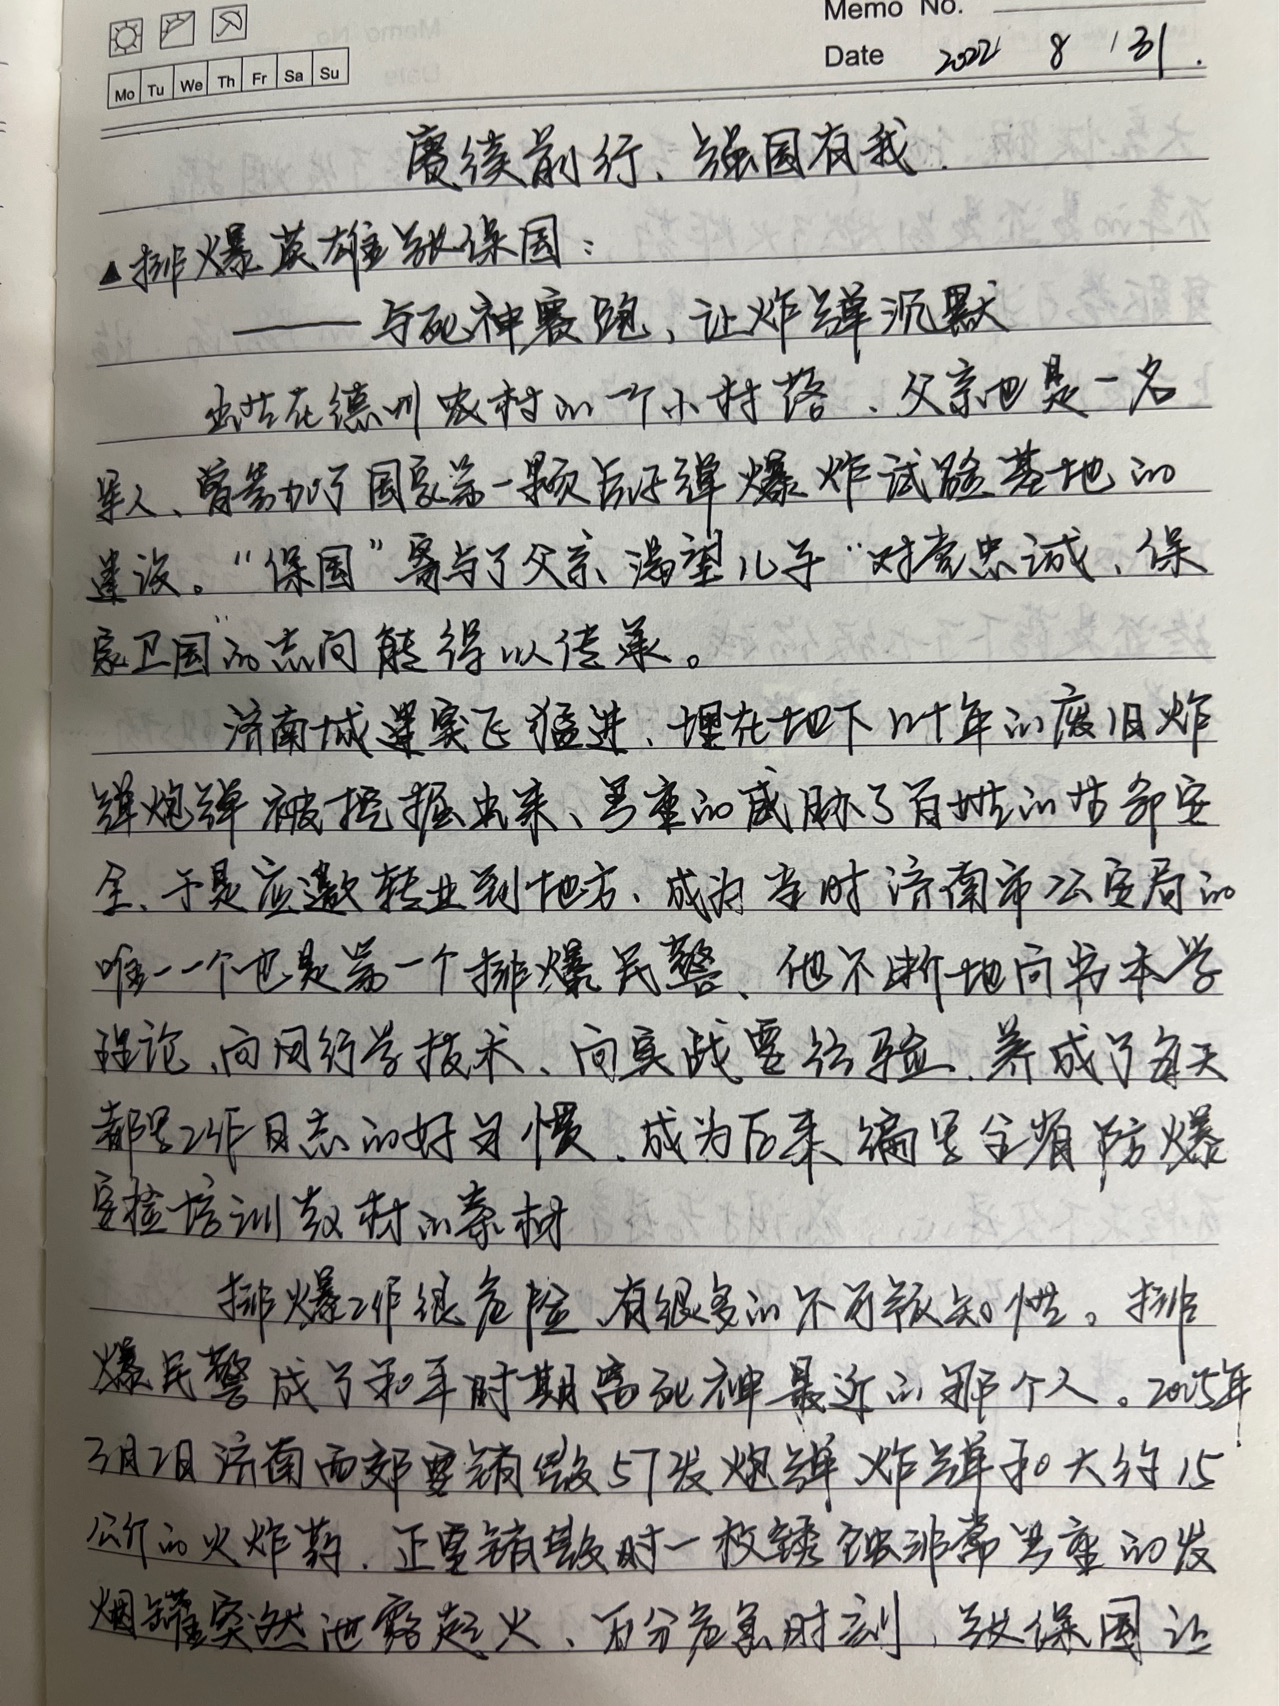 Memo No.
Date 2022 8 / 31 .
Mo Tu We Th Fr Sa Su
赓续前行、强国有我.
▲排爆英雄张保国：
——与死神赛跑、让炸弹沉默
出生在德州农村的一个小村落、父亲也是一名
军人、曾参加了国家第一颗原子弹爆炸试验基地的
建设。“保国”寄与了父亲渴望儿子“对党忠诚、保
家卫国”的志向能得以传承。
济南城建突飞猛进、埋在地下几十年的废旧炸
弹炮弹被挖掘出来、严重的威胁了百姓的生命安
全、于是应邀转业到地方、成为当时济南市公安局的
唯一一个也是第一个排爆民警、他不断地向书本学
理论、向同行学技术、向实战要经验、养成了每天
都写工作日志的好习惯、成为后来编写全省防爆
安检培训教材的素材
排爆工作很危险、有很多的不可预知性。排
爆民警成了和平时期离死神最近的那个人。2005年
3月2日济南西郊要销毁57发炮弹炸弹和大约15
公斤的火炸药、正要销毁时一枚锈蚀非常严重的发
烟罐突然泄露起火、万分危急时刻、张保国让